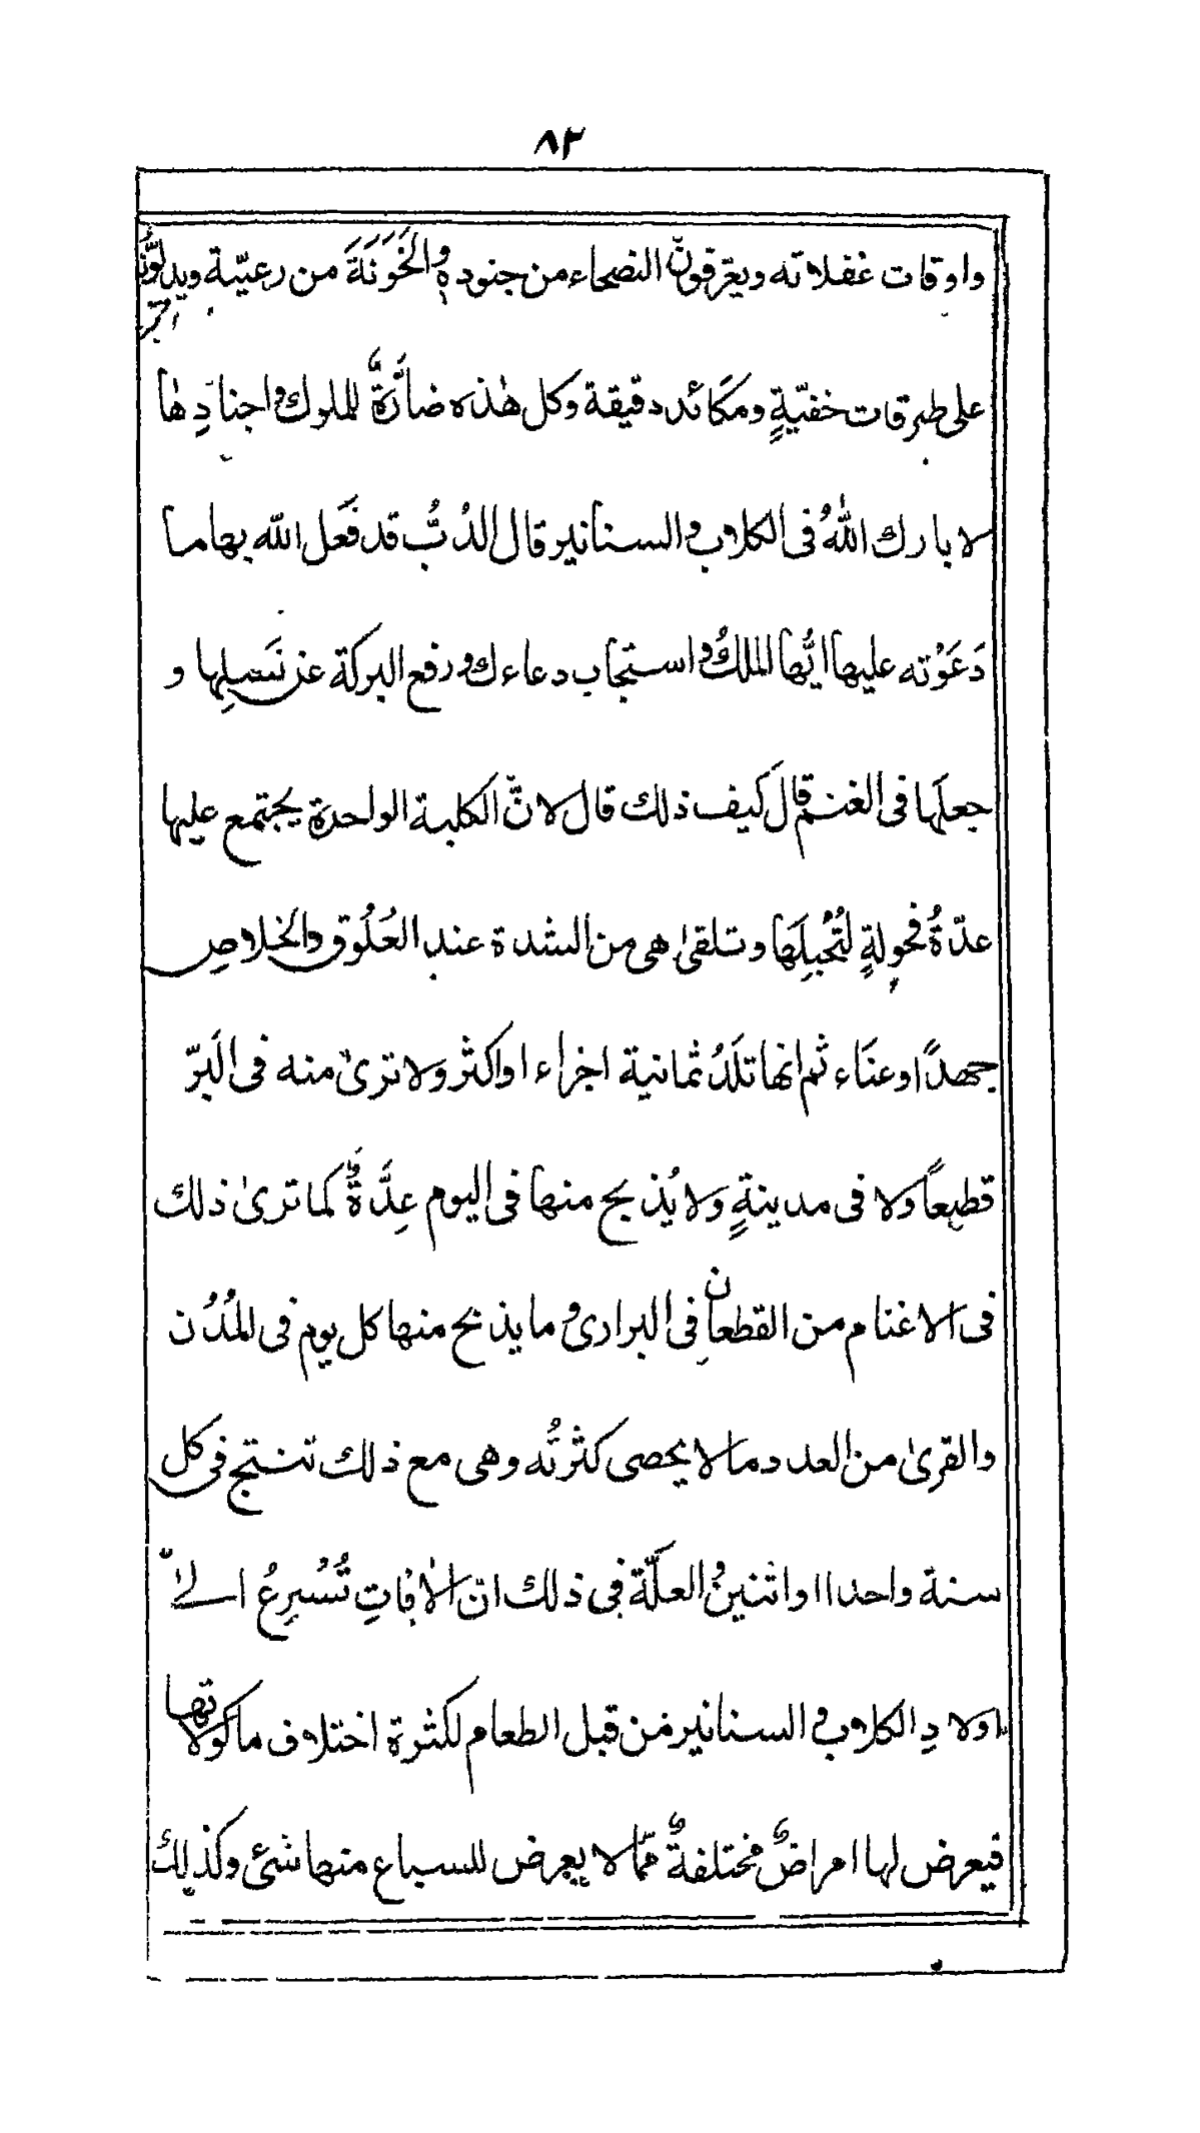 ٨٢
واوقات غفلاته ويعرّفونّ النصحاء من جنوده والخَوَنَةَ من رعيّته ويدلّونه
على طرقات خفيّةٍ ومكائد دقيقة وكل هٰذه ضارّةٌ للملوك واجنادِها
لا بارك اللهُ فى الكلاب والسنانير قال الدُبُّ قد فَعل الله بها ما
دَعَوْته عليها ايُّها الملكُ واستجاب دعاءك ورفع البركة عن نَسلِها و
جعلَها فى الغنم قالَ كيف ذلك قال لانّ الكلبة الواحدة يجتمع عليها
عدّةُ فحولةٍ لتُحْبِلَها وتلقىٰ هى من الشدة عند العُلُوق والخلاصِ
جهدًا وعنَاء ثم انها تلَدُ ثمانية اجراء او اكثر ولا ترىٰ منه فى البَرّ
قطيعاً ولا فى مدينةٍ ولا يُذبح منها فى اليوم عِدَّةٌ كما ترىٰ ذلك
فى الاغنام من القطعان فى البرارى وما يذبح منها كل يوم فى المُدُن
والقرىٰ من العدد ما لا يحصى كثرتُه وهى مع ذلك تنتج فى كل
سنة واحدا او اثنين والعلّة فى ذلك انّ الاٰفاتِ تُسْرِعُ الىٰ
اولادِ الكلاب والسنانير من قبل الطعام لكثرة اختلاف ماكولاتها
فيعرض لها امراضٌ مختلفةٌ ممّا لا يعرض للسباع منها شئ وكذلك